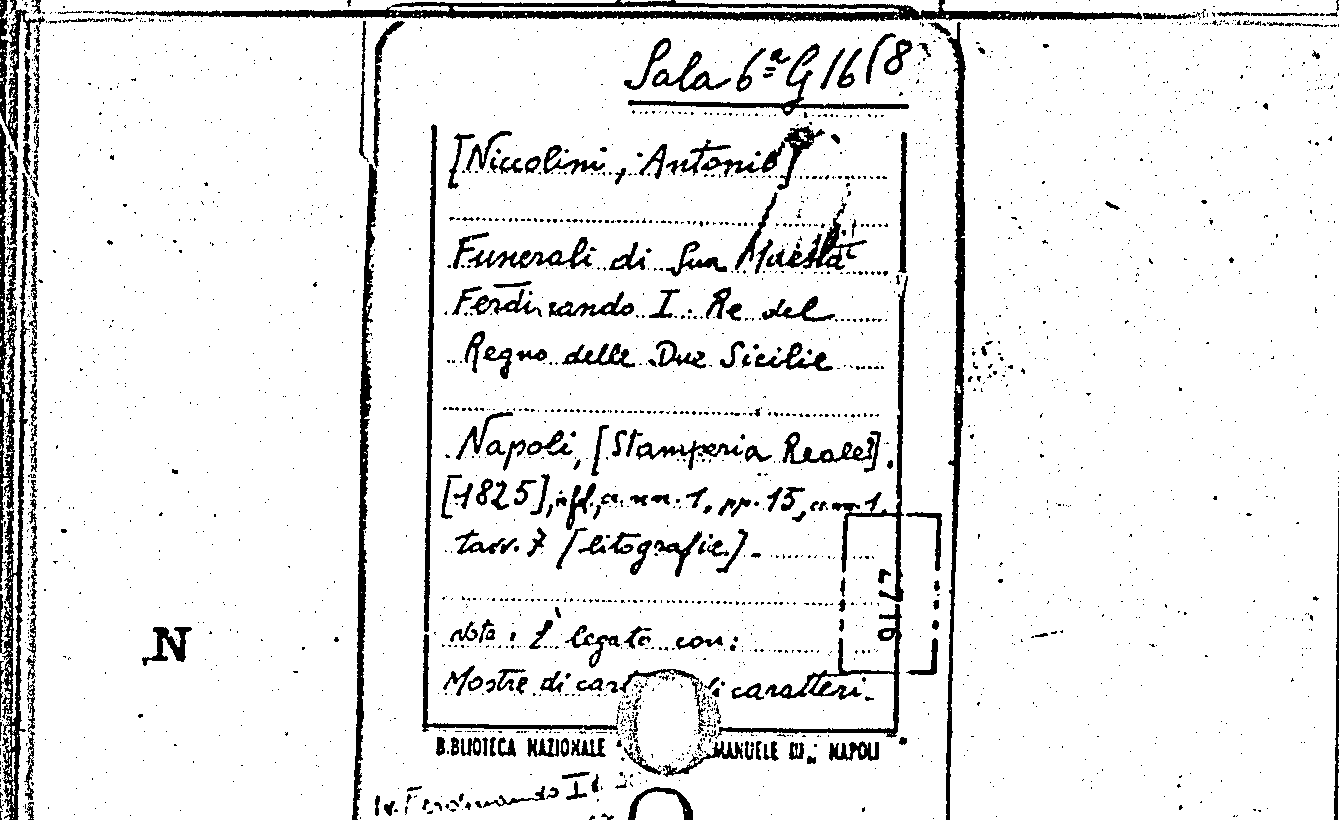 Sala 6ª G 16 (8
[Niccolini, Antonio]
Funerali di Sua Maestà
Ferdinando I. Re del
Regno delle Due Sicilie
Napoli, [Stamperia Reale?].
[1825], c. nn. 1, pp. 15, c. nn. 1,
tavv. 7 [litografie]. -
Nota: È legato con:
Mostre di caratteri.
4716
N
B.BLIOTECA NAZIONALE MANUELE III„ NAPOLI
Iv. Ferdinando I